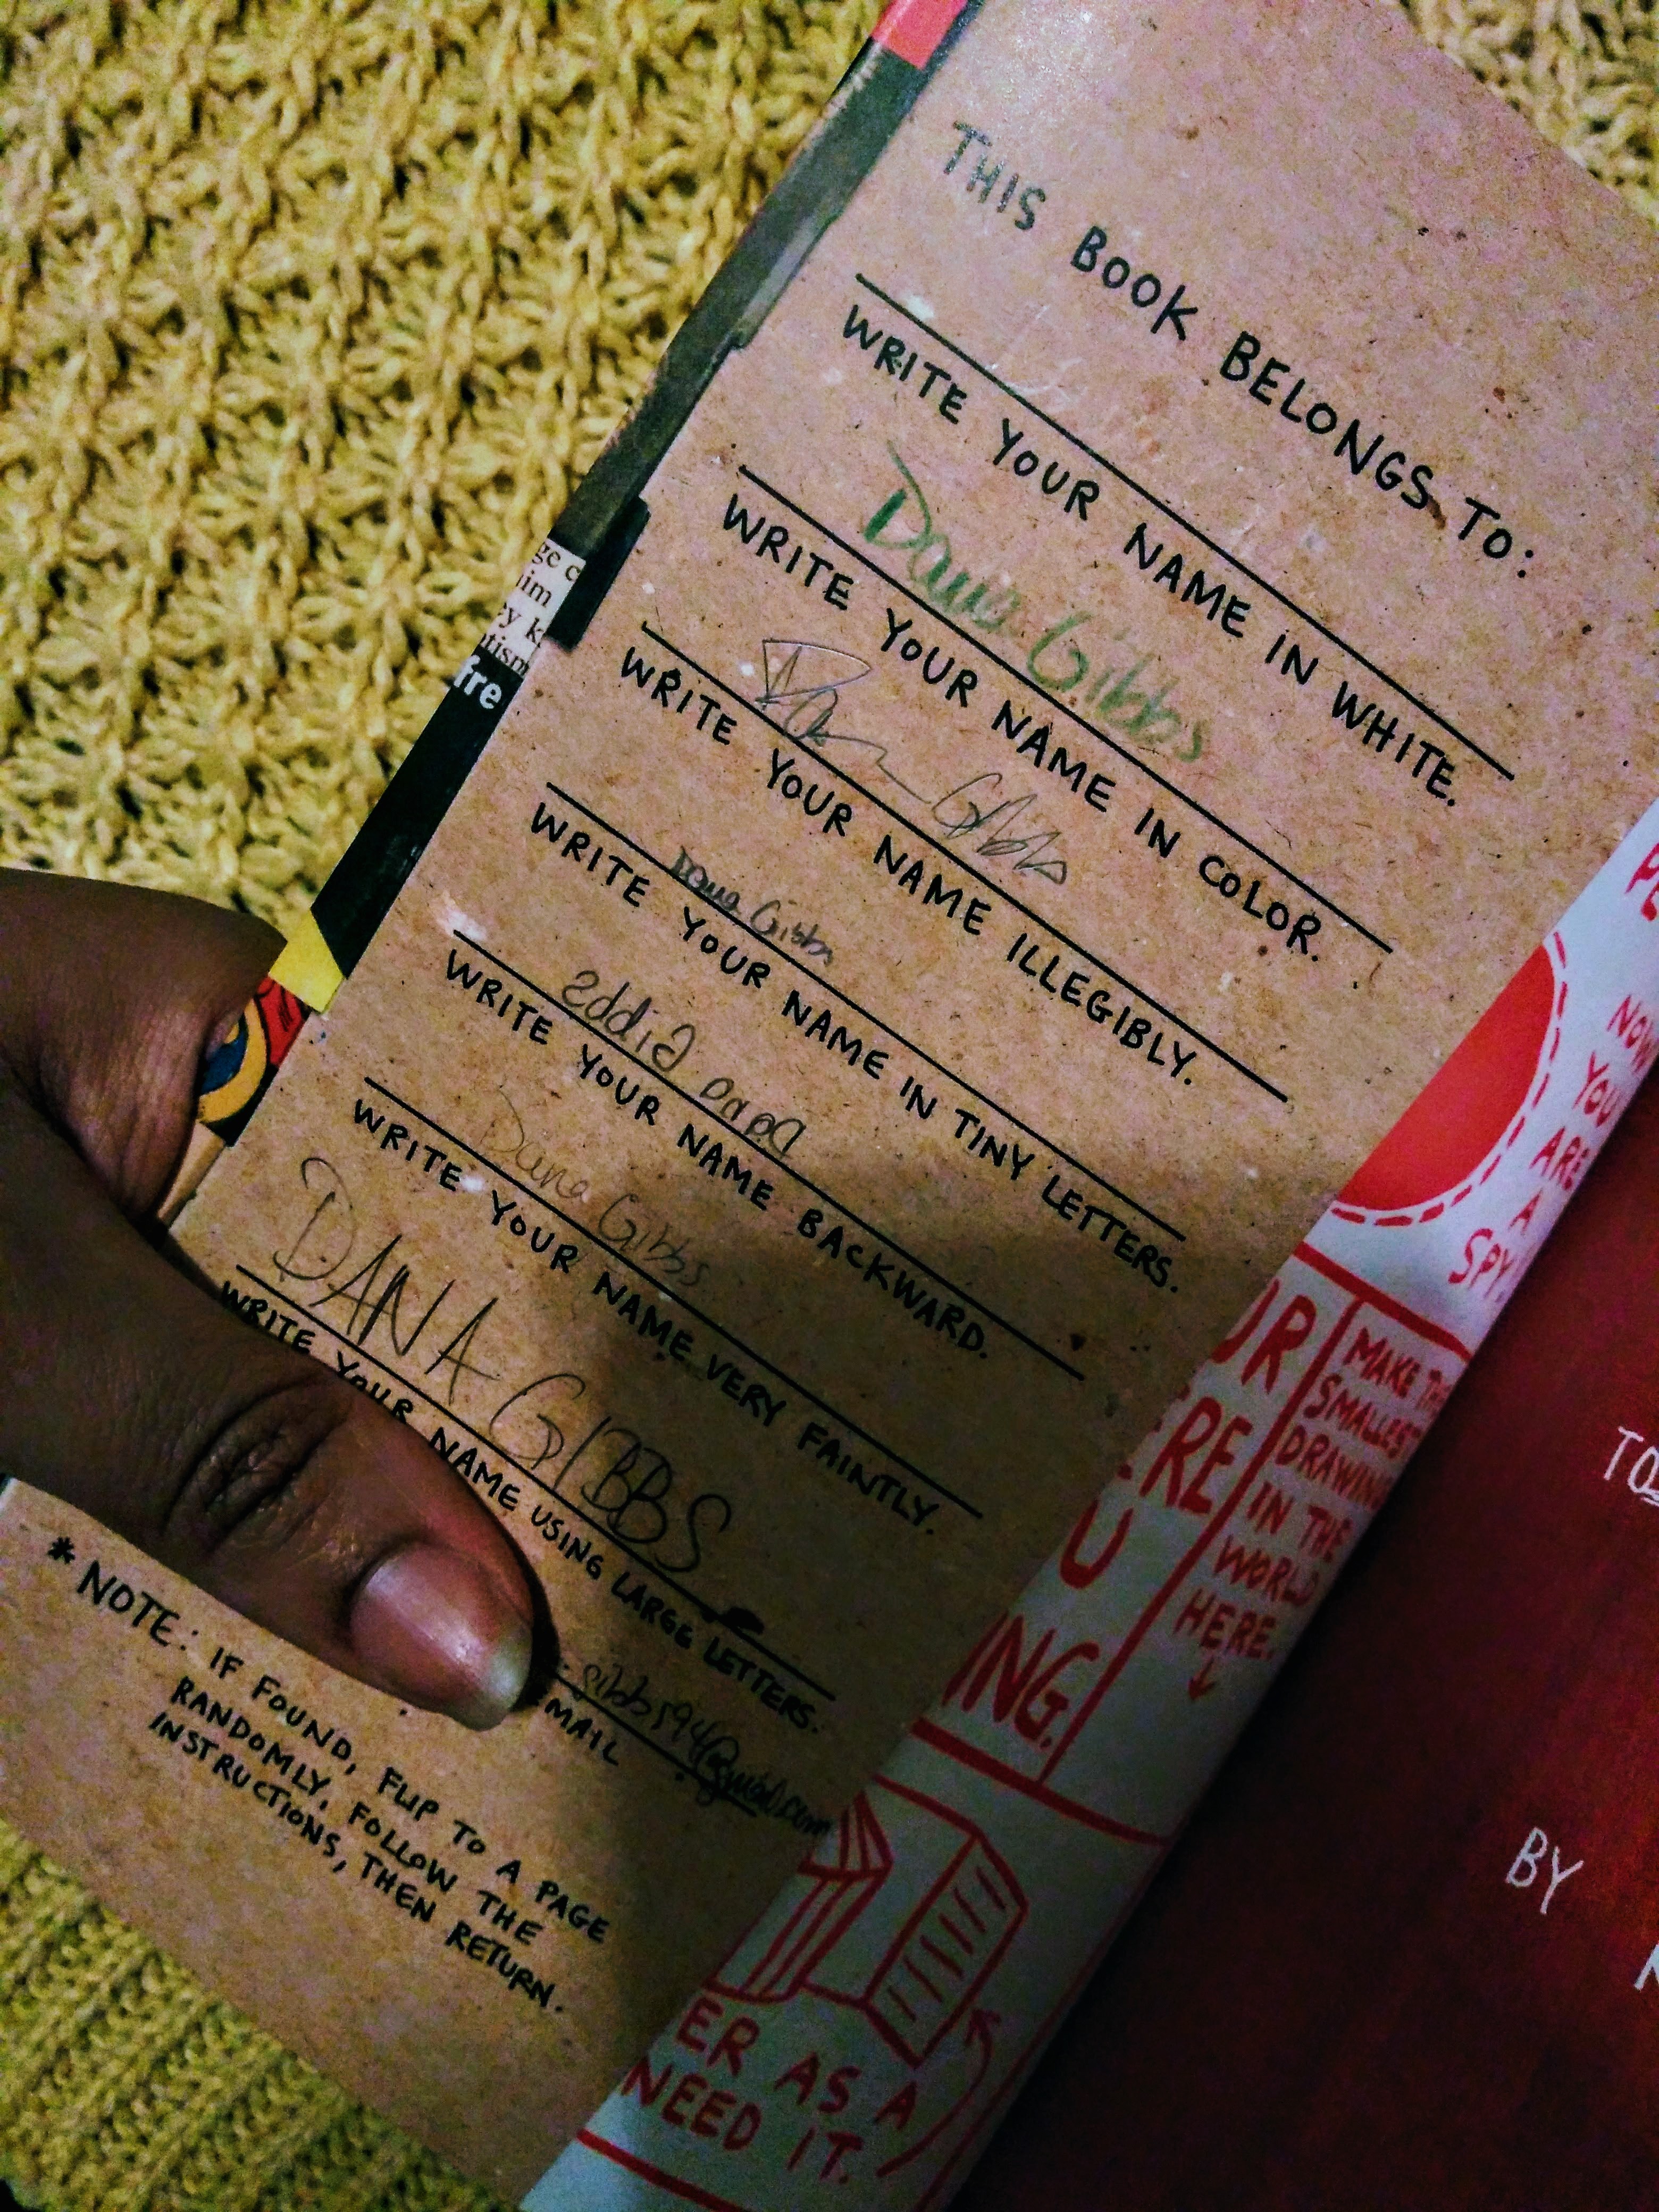 THIS BOOK BELONGS TO:
WRITE YOUR NAME IN WHITE.
Dana Gibbs
WRITE YOUR NAME IN COLOR.
Dana Gibbs
WRITE YOUR NAME ILLEGIBLY.
Dana Gibbs
WRITE YOUR NAME IN TINY LETTERS.
sddiG anaD
WRITE YOUR NAME BACKWARD.
Dana Gibbs
WRITE YOUR NAME VERY FAINTLY.
DANA GIBBS
WRITE YOUR NAME USING LARGE LETTERS.
gibbs94@gmail.com
MAIL
* NOTE: IF FOUND, FLIP TO A PAGE
RANDOMLY, FOLLOW THE
INSTRUCTIONS, THEN RETURN.
ge c
im
ey k
tism
fre
NOW
YOU
ARE
A
SPY.
UR
ERE
U
ING.
MAKE THE
SMALLEST
DRAWING
IN THE
WORLD
HERE.
ER AS A
NEED IT.
TO
BY